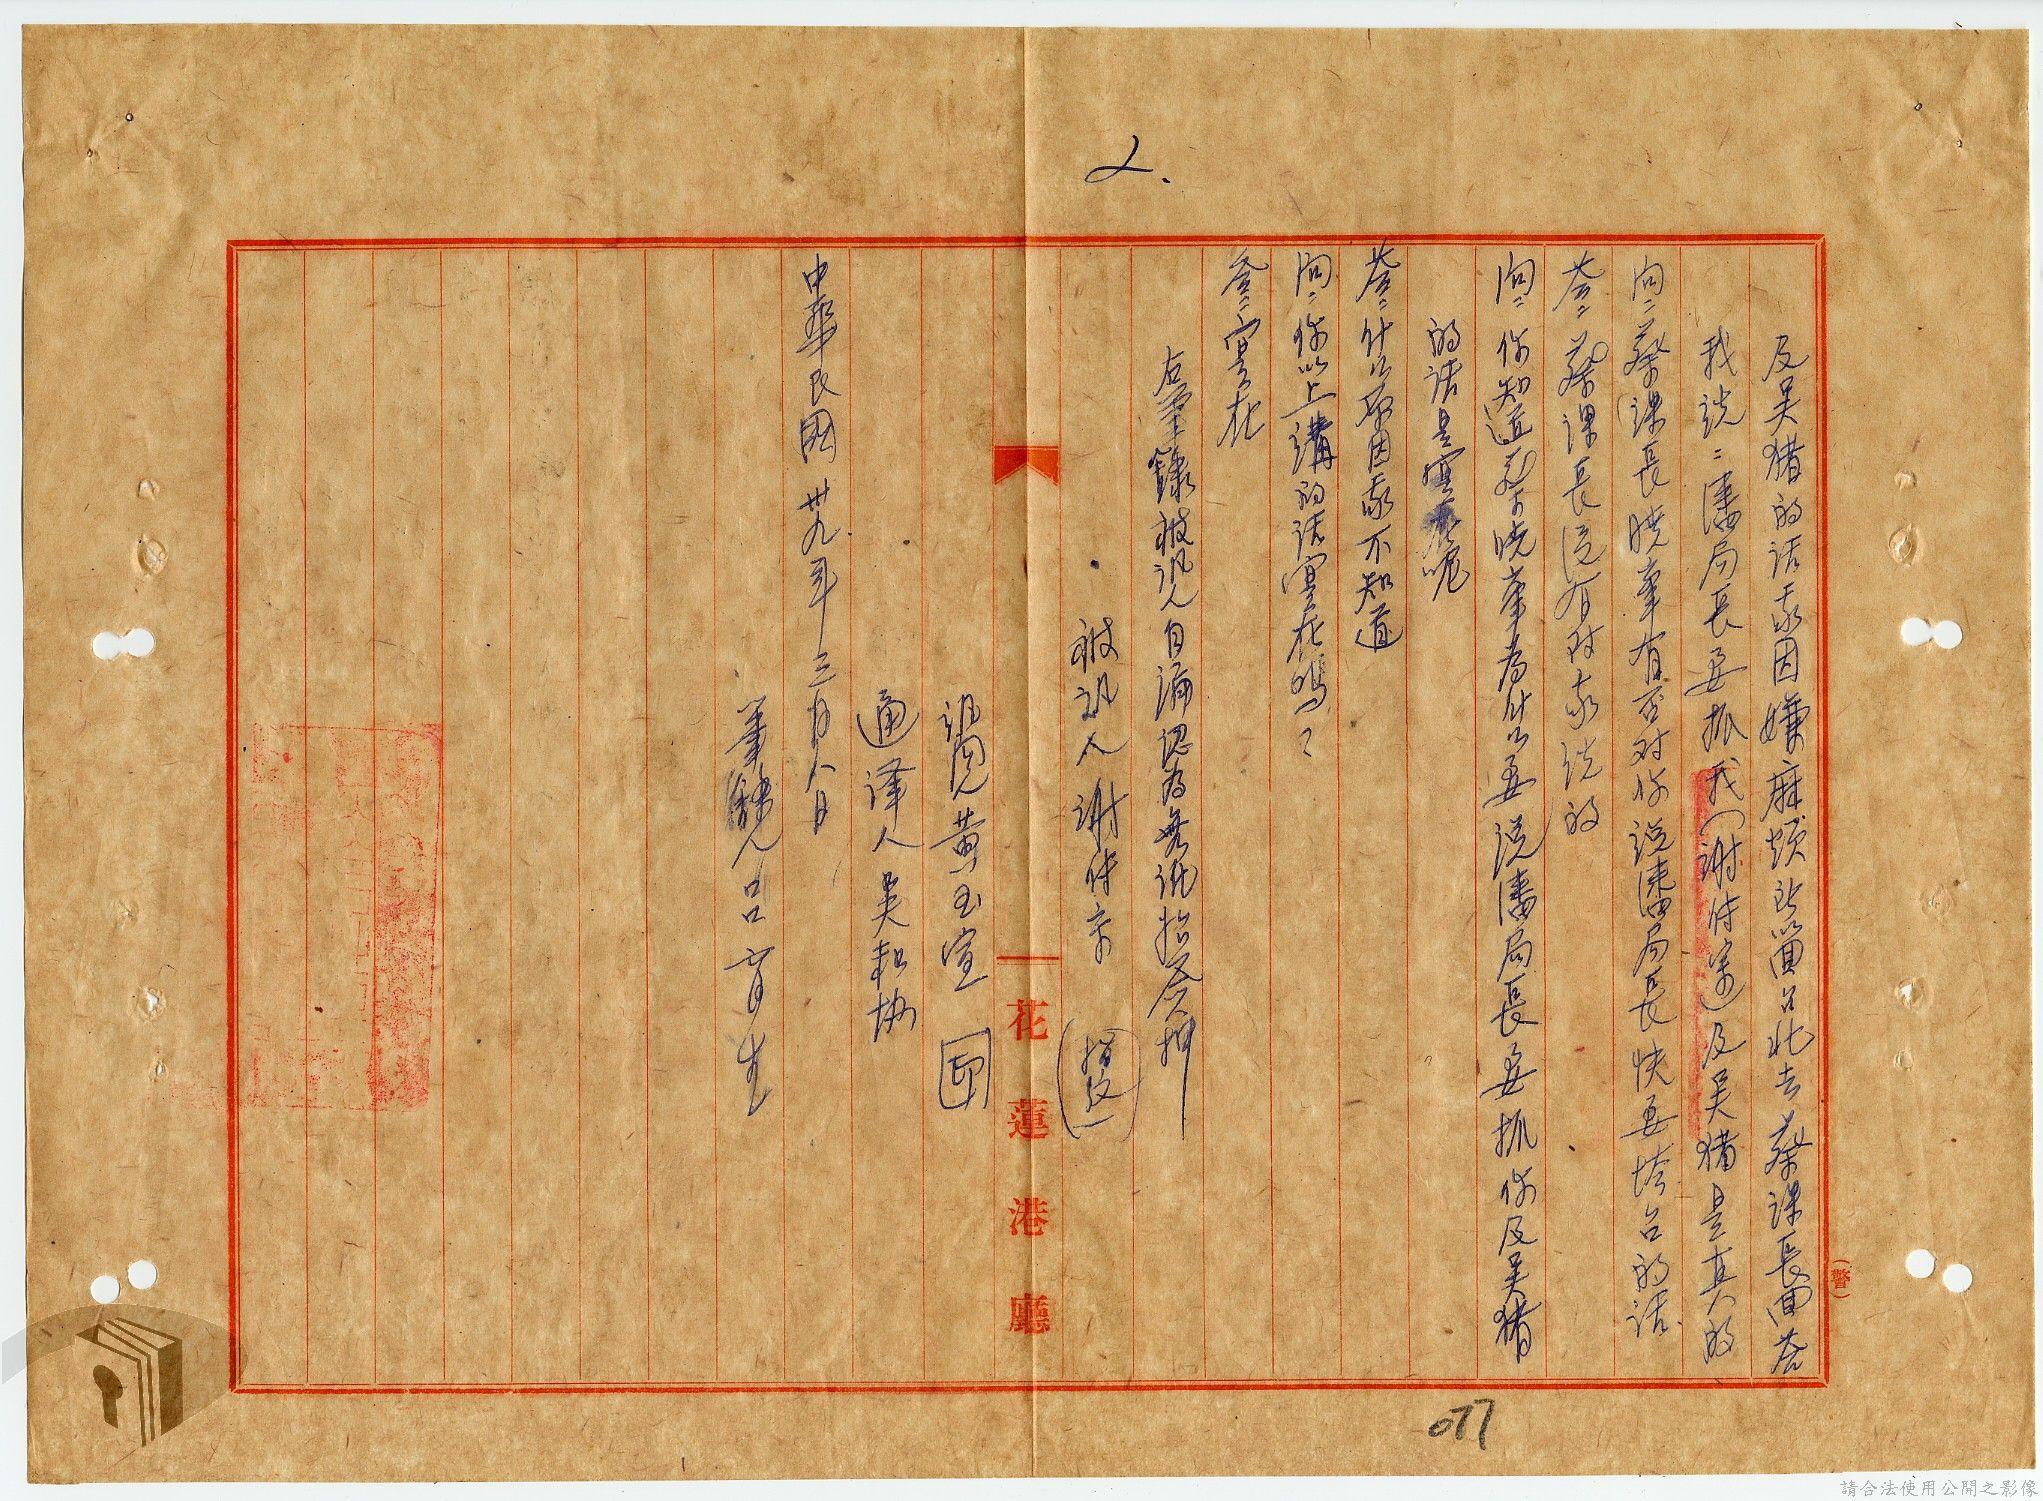 2.
及吳猪的話我因嫌麻煩所以回台北去蔡課長回答
我說:潘局長要抓我(謝侍字)及吳猪是真的
问:蔡課長晓率有否对你說潘局長快要垮台的話
答:蔡課長沒有对我说的
问:你知道蔡晓率為什么要說潘局長要抓你及吳猪
的话是實在呢
答:什么原因我不知道
问:你以上講的话實在嗎?
答:實在
右筆錄被訊人自誦認為無訛捺令押
被訊人 謝侍字 (指紋)
訊問人 黃玉宣 印
通译人 吳和協
中華民國卅九年三月八日
筆錄人 呂育生
花蓮港廳
(警)
077
請合法使用公開之影像